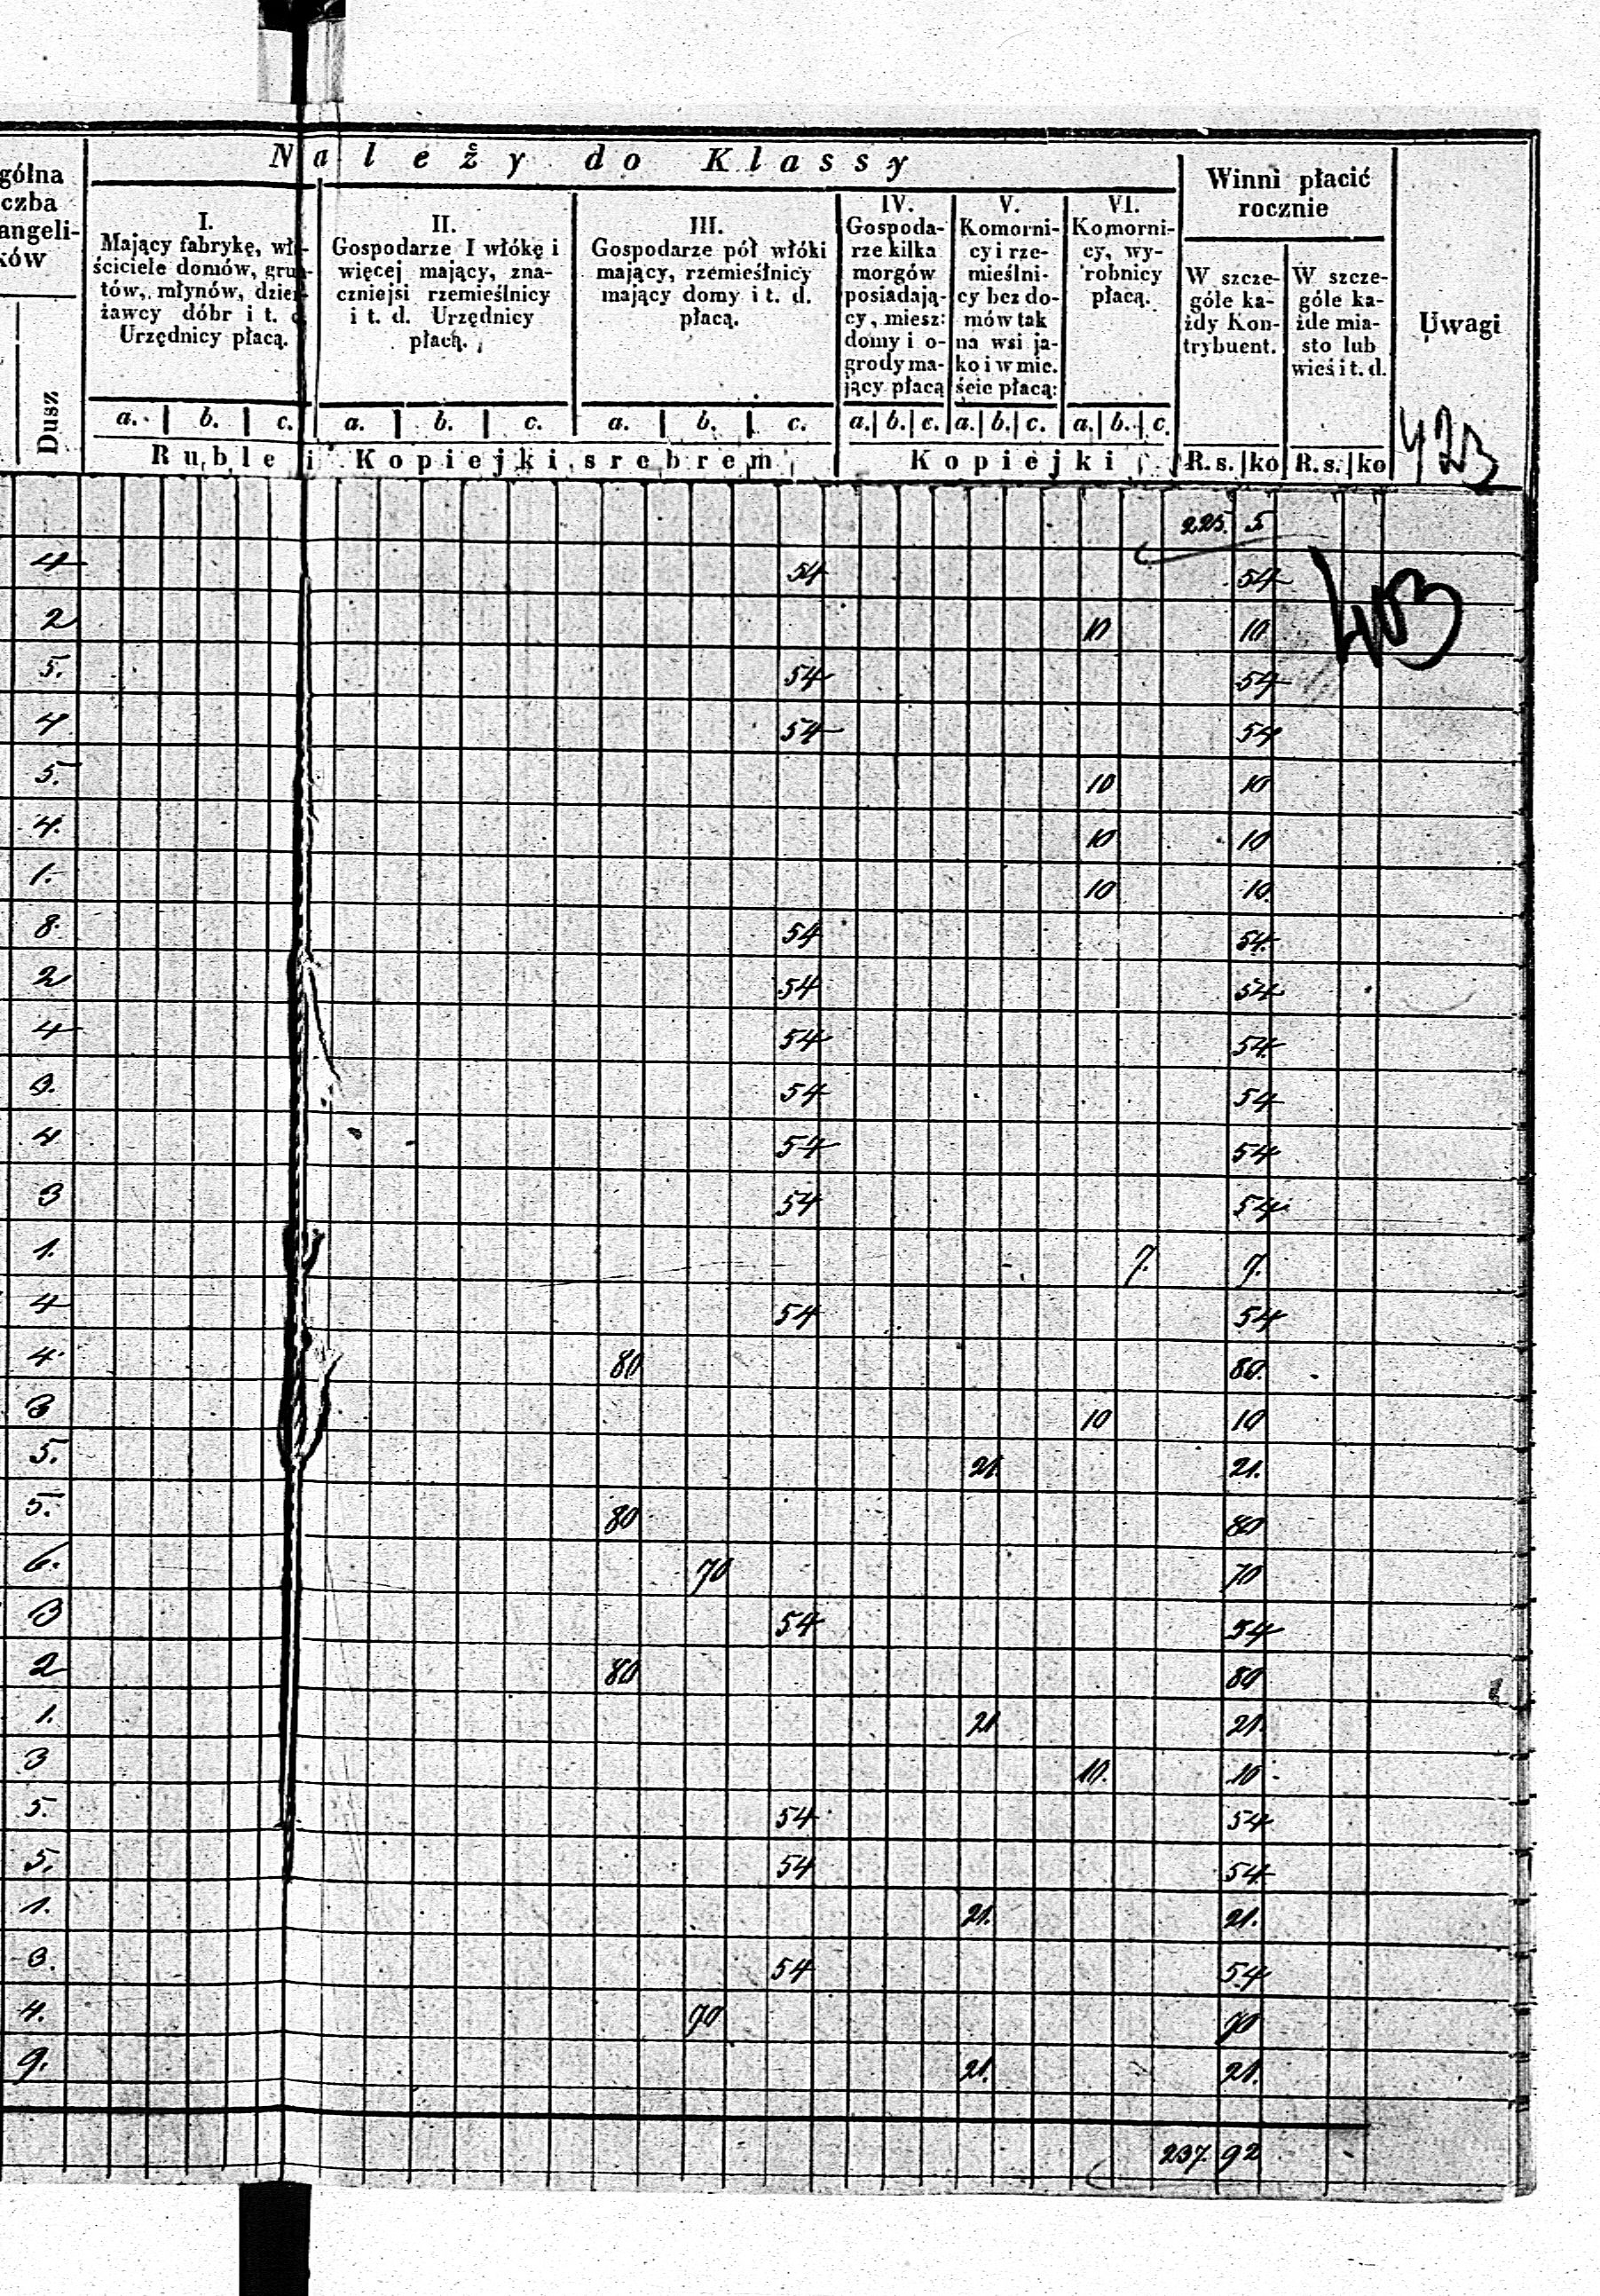 Należy do Klassy
gólna
czba
angeli-
ków
Dusz
I.
Mający fabrykę, wła-
ściciele domów, grun-
tów, młynów, dzier-
żawcy dóbr i t. d.
Urzędnicy płacą.
II.
Gospodarze I włókę i
więcej mający, zna-
czniejsi rzemieślnicy
i t. d. Urzędnicy
płacą.
III.
Gospodarze pół włóki
mający, rzemieślnicy
mający domy i t. d.
płacą.
IV.
Gospoda-
rze kilka
morgów
posiadają-
cy, miesz:
domy i o-
grody ma-
jący płacą
V.
Komorni-
cy i rze-
mieślni-
cy bez do-
mów tak
na wsi ja-
ko i w mie.
ście płacą:
VI.
Komorni-
cy, wy-
robnicy
płacą.
Winni płacić
rocznie
W szcze-
góle ka-
żdy Kon-
trybuent.
W szcze-
góle ka-
żde mia-
sto lub
wieś i t. d.
Uwagi
423
a. b. c. a. b. c. a. b. c. a. b. c. a. b. c. a. b. c.
Ruble i Kopiejki srebrem Kopiejki R. s. ko R. s. ko
225. 5
403
4 54 54
2 10 10
5. 54 54
4 54 54
5. 10 10
4. 10 10
1. 10 10.
8. 54 54.
2 54 54
4 54 54
3. 54 54
4 54 54
3 54 54
1. 7. 7.
4 54 54
4 80 80.
3 10 10
5. 21. 21.
5. 80 80
6. 70 70
3 54 54
2 80 80
1. 21 21.
3 10. 10
5. 54 54
5. 54 54
1. 21. 21.
3. 54 54
4. 70 70
9. 21. 21.
237. 92